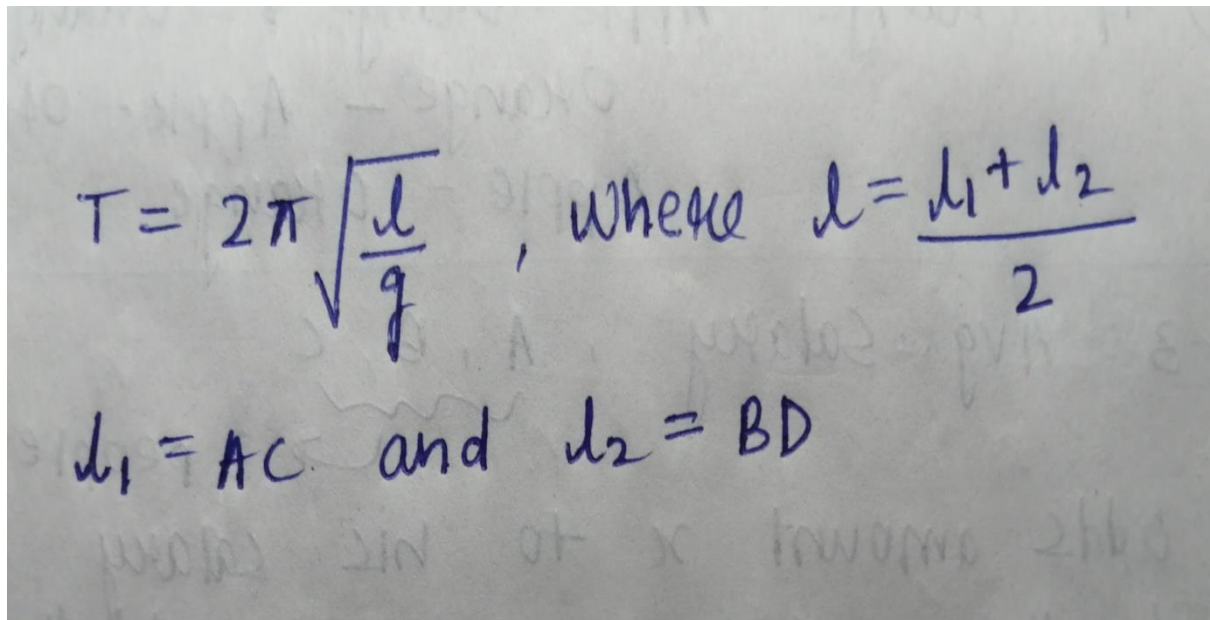 T = 2π√(l/g), where l = (l₁ + l₂)/2
l₁ = AC and l₂ = BD